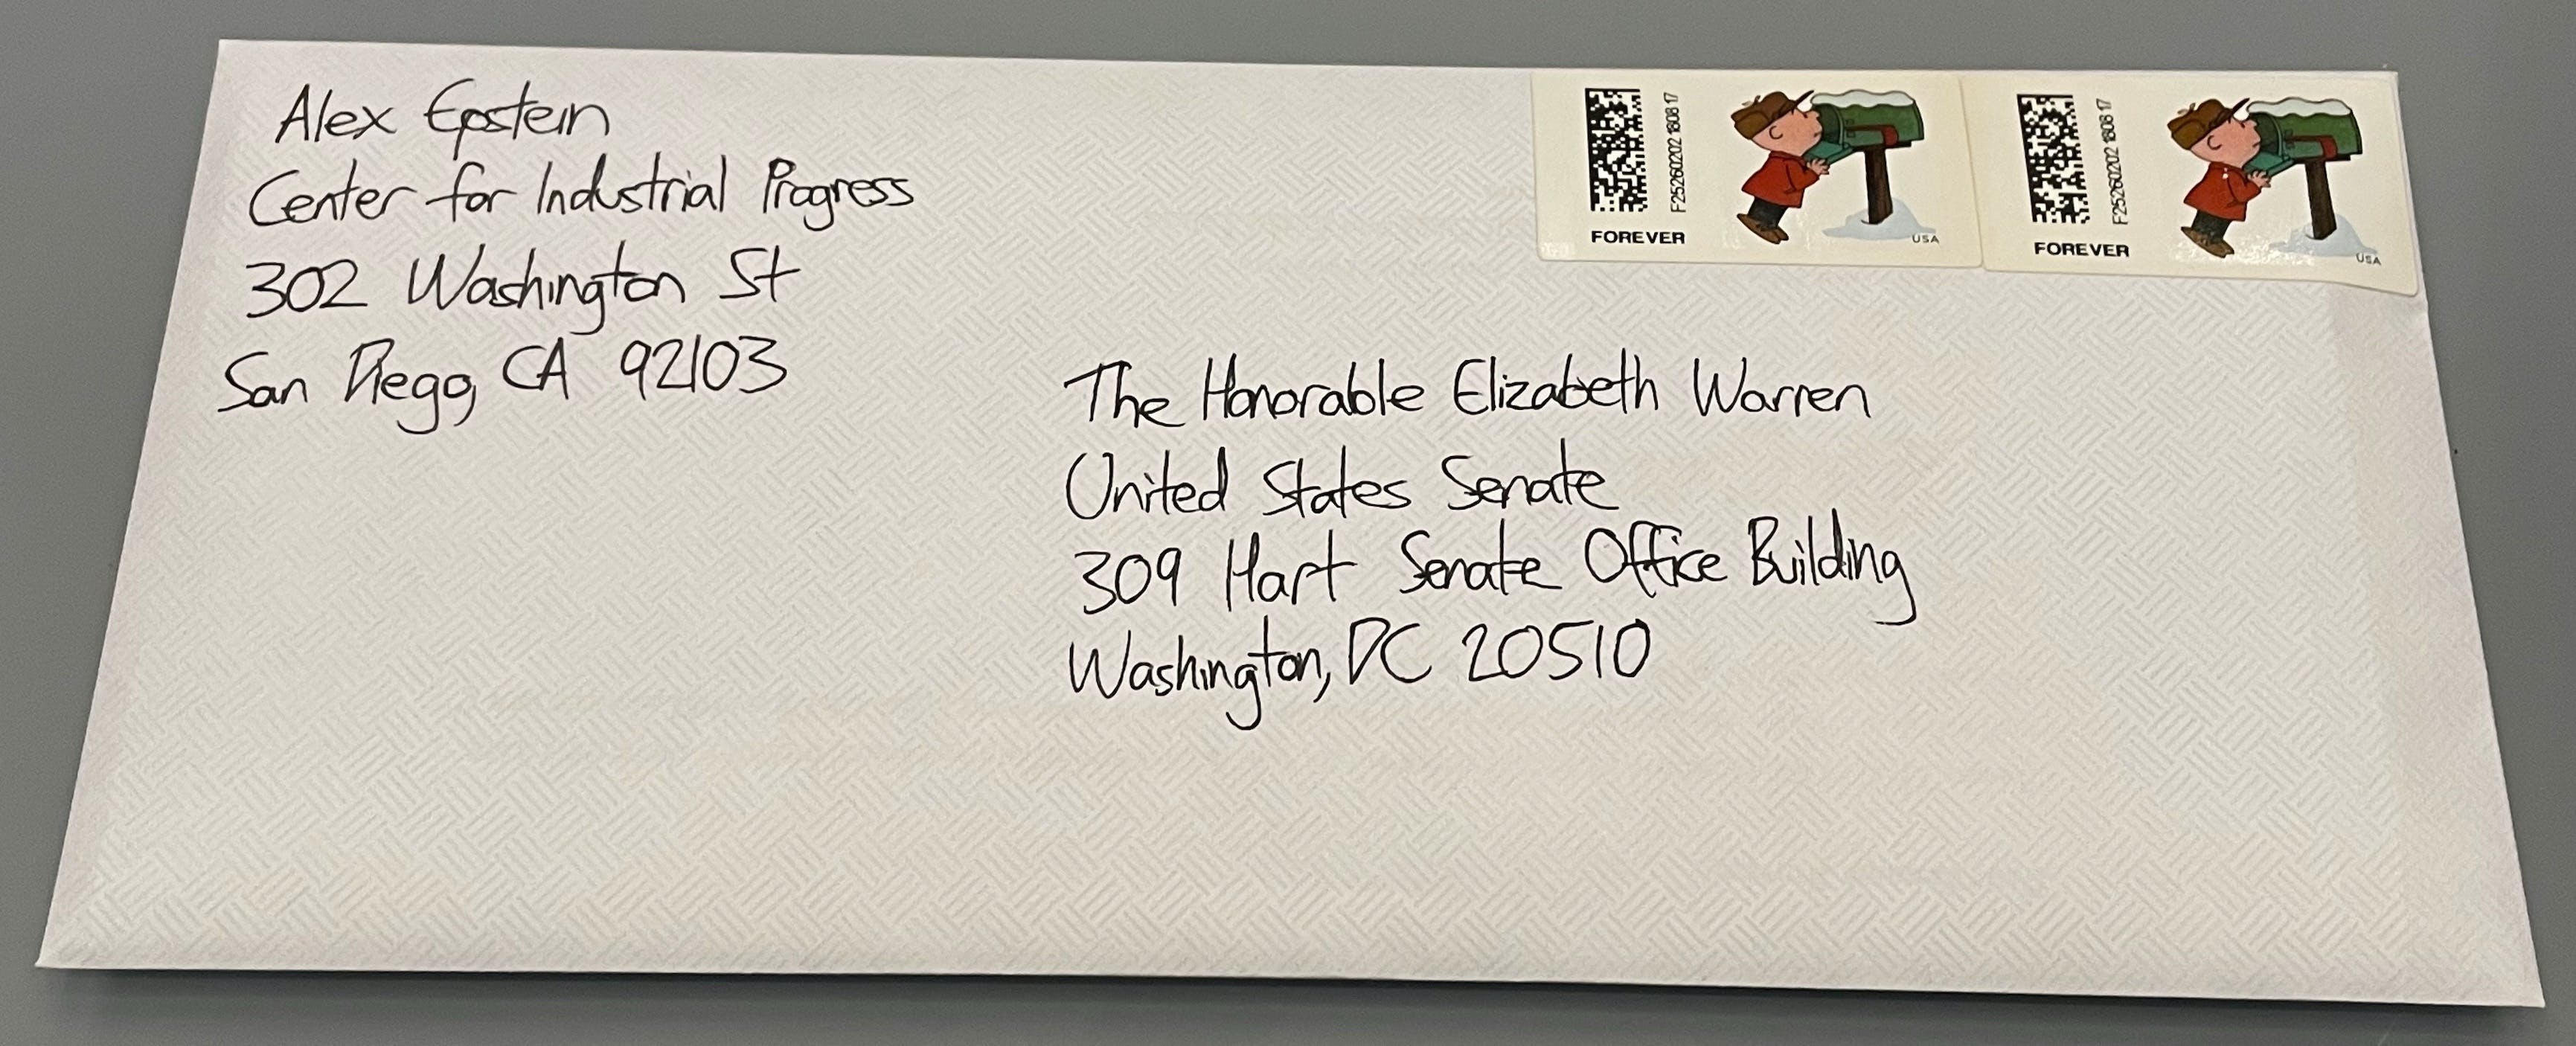 Alex Epstein
Center for Industrial Progress
302 Washington St
San Diego, CA 92103
F25260202 1808 17
FOREVER
USA
F25260202 1808 17
FOREVER
USA
The Honorable Elizabeth Warren
United States Senate
309 Hart Senate Office Building
Washington, DC 20510